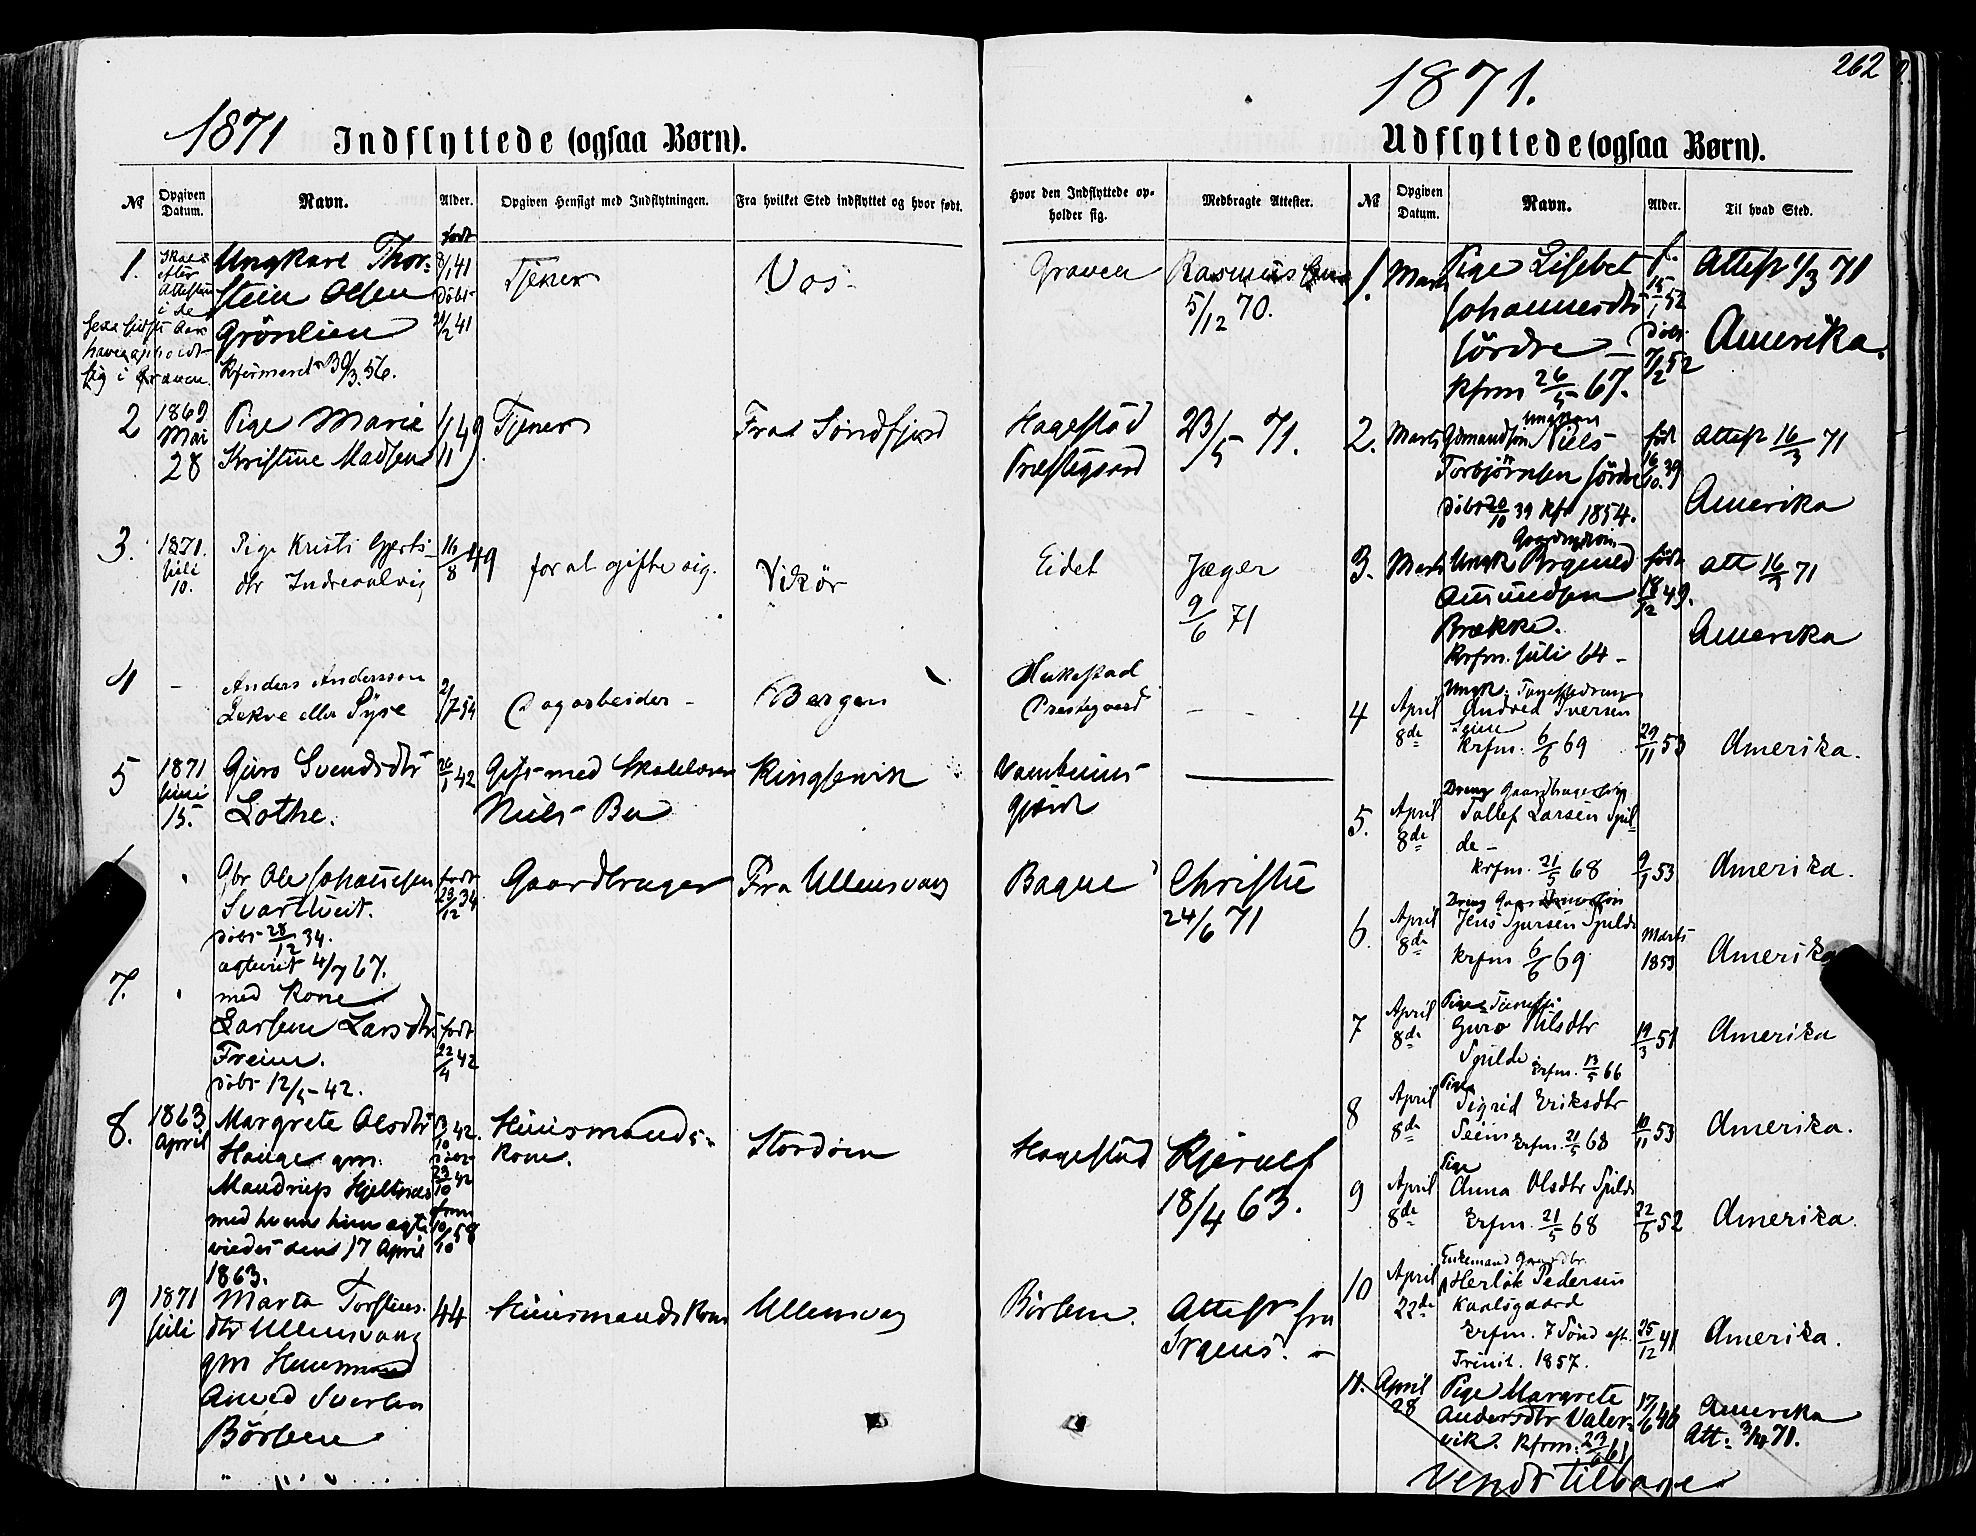 262
1871 Indflyttede (ogsaa Børn).
№ Opgiven Datum. Navn. Alder. Opgiven Hensigt med Indflytningen. Fra hvilket Sted indflyttet og hvor født.
Hvor den Indflyttede opholder sig. Medbragte Attester.
1. Skal efter Attesten i de
Ungkarl Thor-
stein Olsen
Grönlien
født 8/1 41
döbt 41
Tjener
Vos
Graven
Rasmus
5/12 70.
sig i Graven
2 1869
Mai
28
Pige Marie
Kristine Madsen
1/11 49
Tjener
Fra Søndfjord
Hagestad
Præstegaard
23/5 71.
3. 1871.
Juli
10.
Pige Kristi Gjerts-
dtr Indreaalvig
16/8 49
for at gifte sig.
Vikör
Eidet
Jæger
9/6 71
4 -
Anders Andersson
Lekve eller Syse
2/7 54
Dagarbeider -
Bergen
Hakestad
Prestegaard
5 1871
Juni
15.
Guro Svendsdtr
Lothe.
42
Gift med Skolelærer
Niels Bu
Kingservik
Gbr Ole Johannesen
Svartveit.
döbt 28/12 34.
født 23/12 34
Gaardbruger
Fra Ullensvang
Bague
Christie
24/6 71
7.
ægteviet 4/7 67.
med Kone
Larsdtr
Freim.
døbt 12/5 42.
født 22/4 42
8. 1863
April
Margrete Olsdtr
Hauge gm.
Mandrup Hjeltnes
med hvem hun ægte
viedes den 17 April
1863.
Huusmands-
kone.
Stordöen
Hagestad
Kjerulf
18/4 63.
9 1871
Juli
Marta Torsteins-
dtr Ullensvang
gm Huusmand
Börsem
44
Huusmandskone
Ullensvang
Börsem.
Attest fra
Irgens. -
1871.
Udflyttede (ogsaa Børn).
№ Opgiven Datum. Navn. Alder. Til hvad Sted.
1. Marts
Pige Lisebet
Johannesdtr
Sördre -
Kfrm 26/5 67.
f. 15/1 52
döbt 7/2 52
Attest 1/3 71
Amerika.
2. Marts
Ungkarl
Niels
Torbjörnsen Sördre
döbt 20/10 39 Kfr 1854.
født 16/10 39
Attest 16/3 71
Amerika
3. Marts
Ungk Brynild
Amundsen
Brække.
Krfm. Juli 64 -
født 18/12 49.
att 16/3 71
Amerika
4 April
8de
Ungk.
Andred Iversen
Seim
Krfm. 6/6 69
29/11 53
Amerika.
5. April
8de
Dreng
Tollef Larsen Spil-
de -
Krfm. 21/5 68
9/1 53
Amerika.
6. April
8de
Dreng
Jens Sjursen Spilde
Krfm 6/6 69
Marts
1853
Amerika
7 April
8de
Pige
Guro Nilsdtr
Spilde Krfm. 13/5 66
19/3 51
Amerika
8 April
8de
Pige
Sigrid Eriksdtr
Seim Krfm. 21/5 68
10/11 53
Amerika.
9 April
8de
Pige
Anna Olsdtr Spilde
Krfm. 21/5 68
22/6 52
Amerika.
10 April
22de
Enkemand Gaardbr.
Herlók Pedersen
Karlsgaard
Krfm. 7 Sönd eft.
Trinit. 1857.
25/12 41
Amerika.
11. April
28
Pige Margrete
Andersdtr Valer-
vik. Kfrm: 23/6 61
17/6 46
Amerika
Att: 3/4 71.
Vendt tilbage